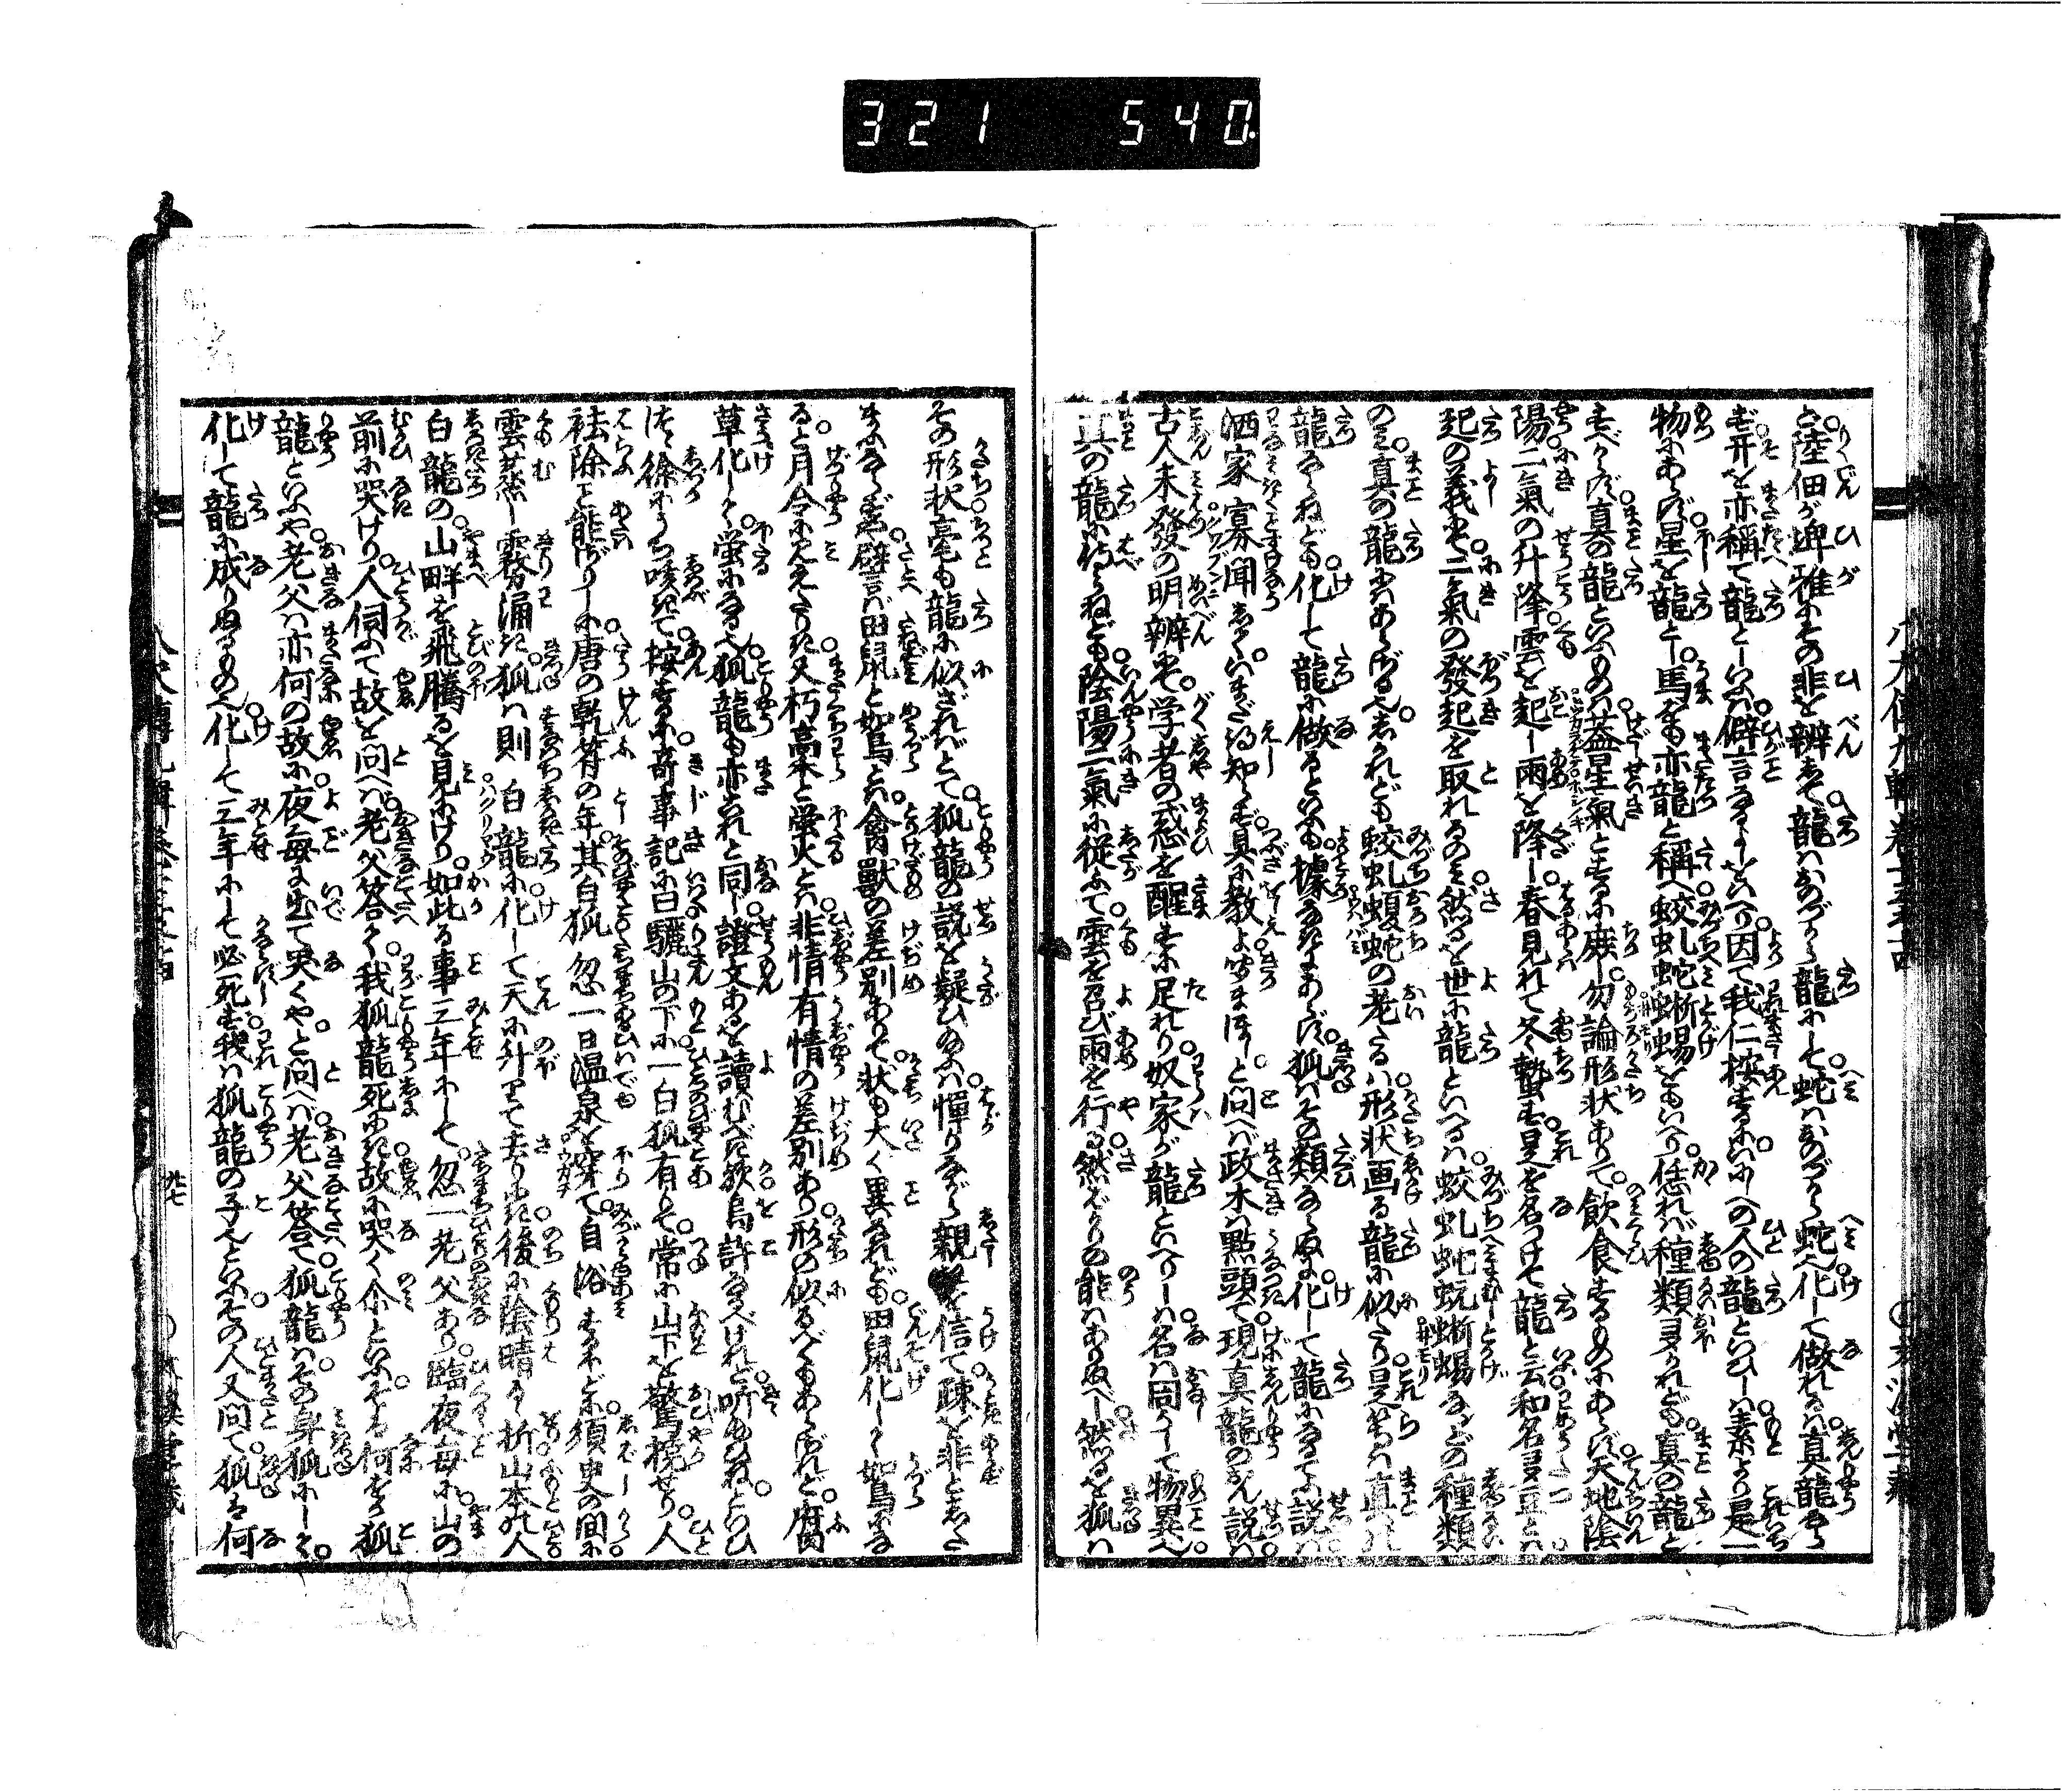 321 540
と陸佃が埤雅にその非を辨じて龍はおのづから龍にして蛇はおのづから蛇へ化して做れるは真龍なら
ず并を亦稱て龍としいふは僻言なるよしをいへり因て我仁按ずるにいにしへの人の龍といひしは素より是一
物にあらず星を龍とし馬をも亦龍と稱へ蛟虬蛇蜥蜴をもいへり恁れば種類多かれども真の龍と
すべからず真の龍といふものは蓋星氣とするに庶し勿論形状ありて飲食するものにあらず天地陰
陽二氣の升降雲を起し雨を降し春見れて冬蟄す是を名つけて龍と云和名多豆とは
起の義にて二氣の發起を取れるのみ然るを世に龍といへるは蛟虬蛇蚖蜥蜴などの種類
のみ真の龍にはあらざるべししかれども蛟虬蝮蛇の老たるは形状画る龍に似たり是等は真の
龍ならねども化して龍に做るといふも據なきにあらず狐はその類ならぬに化して龍になるてふ説は
洒家寡聞しらくいまだ知らず具に教よ聞まほしと問へば政木は點頭て現真龍のおん説は
古人未發の明辨にて学者の惑を醒すに足れり奴家が龍といへりしは名は同うして物異へ
真の龍に得ならねども陰陽二氣に従ふて雲を召び雨を行る然ばかりの能はありぬべし然るを狐は
その形状毫も龍に似ざればとて狐龍の説を疑ひ給ふは憚りながら親を信て疎を非としたま
ふならずや譬ば田鼠と鴽とは禽獸の差別ありて状も太く異なれども田鼠化して鴽になる
ると月令に見えたりき又朽高木と螢火とは非情有情の差別あり形の似るべくもあらざれど腐
草化して螢になるべし狐龍も亦これと同じ證文あるを讀むべき歟烏許なるべけれど听ねかしといひ
つゝ徐にうち咳きて按ずるに奇事記に曰驪山の下に一白狐有りて常に山下を驚撓せり人
祛除こと能ざりしに唐の乾符の年其白狐忽一日温泉を穿て自浴すさるほどに須臾の間に
雲蒸し霧涌き狐は則白龍に化して天に升りて去りにき後に陰晴るゝ折山本の人
白龍の山畔を飛騰るを見にけり如此る事三年にして忽一老父あり臨夜毎に山の
前に哭けり人伺ふて故を問へば老父答らく我狐龍死にき故に哭く介といふをなほ何をか狐
龍といふや老父は亦何の故に夜毎に出て哭くやと問へは老父答て狐龍はその身狐にして
化して龍に成りぬるものへ化して三年にして必死す我は狐龍の子へといふその人又問て狐は何